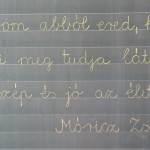 öröm abból ered, h
i meg tudja lát
szép és jó az élet
Móricz Zs